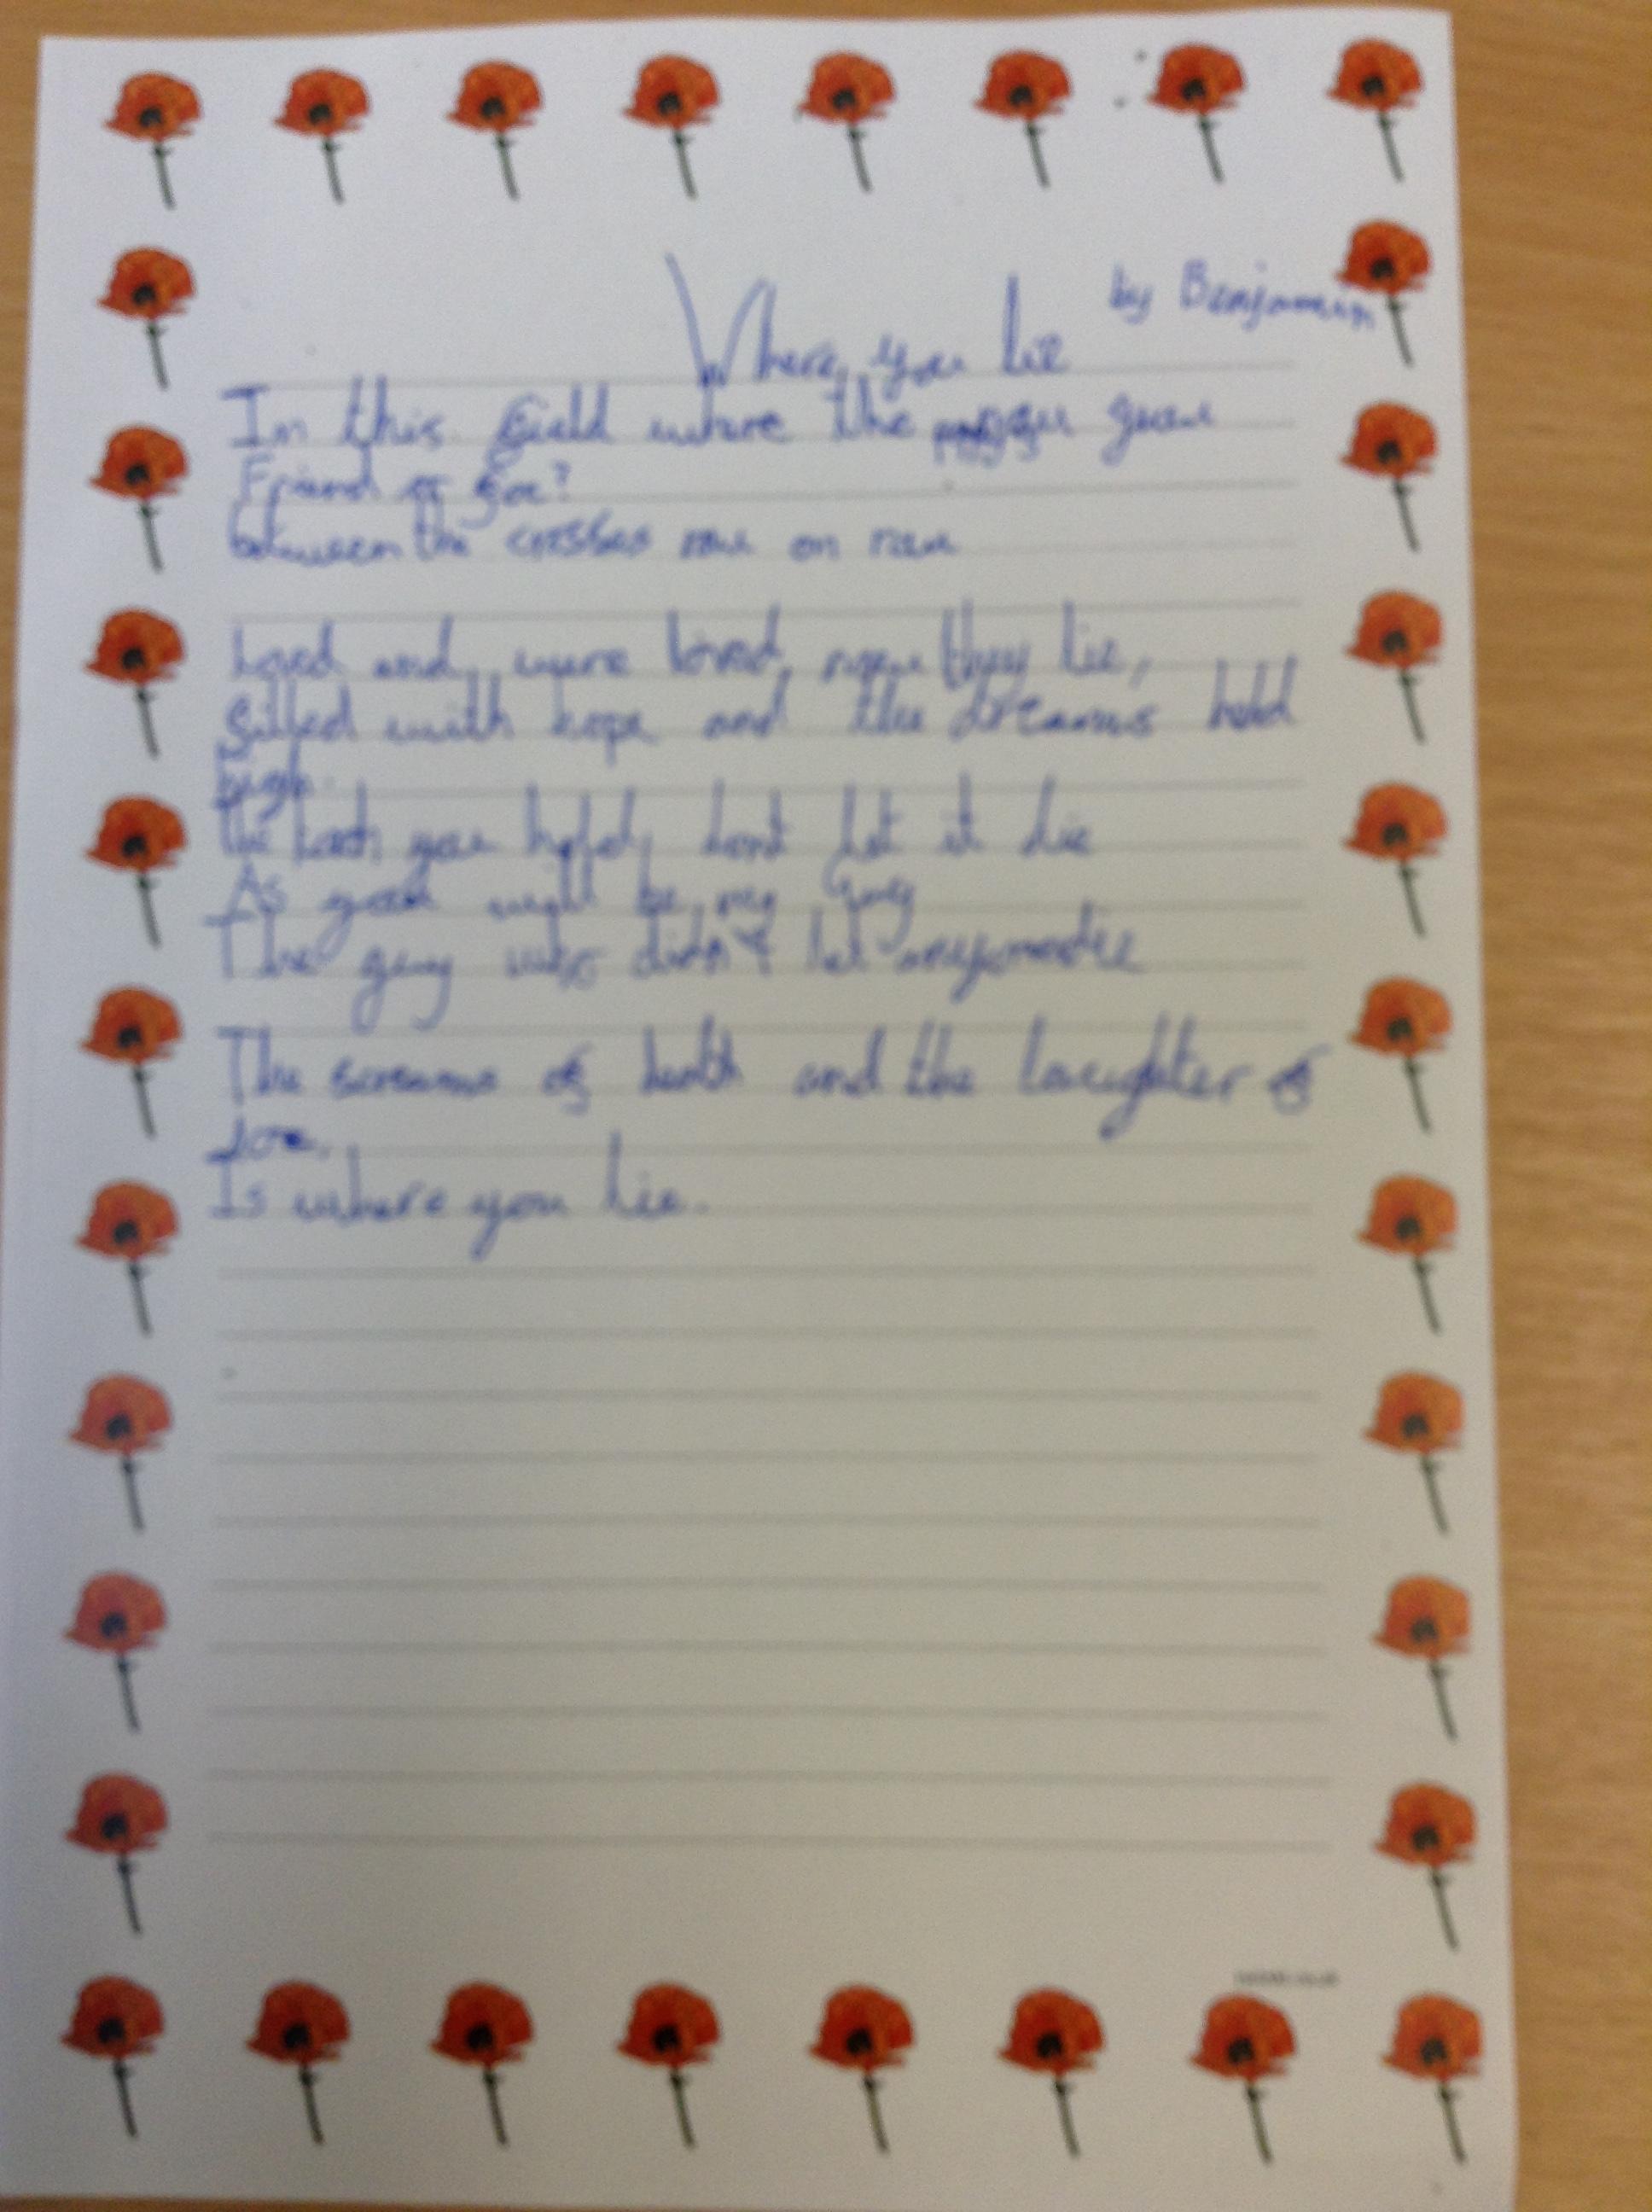 Where you lie
by Benjamin
In this field where the grow
Friend or foe?
between the crosses row on row
Loved and were loved, now they lie,
filled with hope and the dreams held
high.
The you hold, dont let it die
As you will be my Guy
The guy who didn't let anyone die
The screams of death and the laughter of
foe,
Is where you lie.